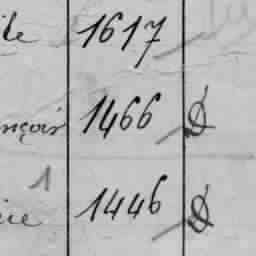 ile 1617
nçois 1466 D
1
ère 1446 D